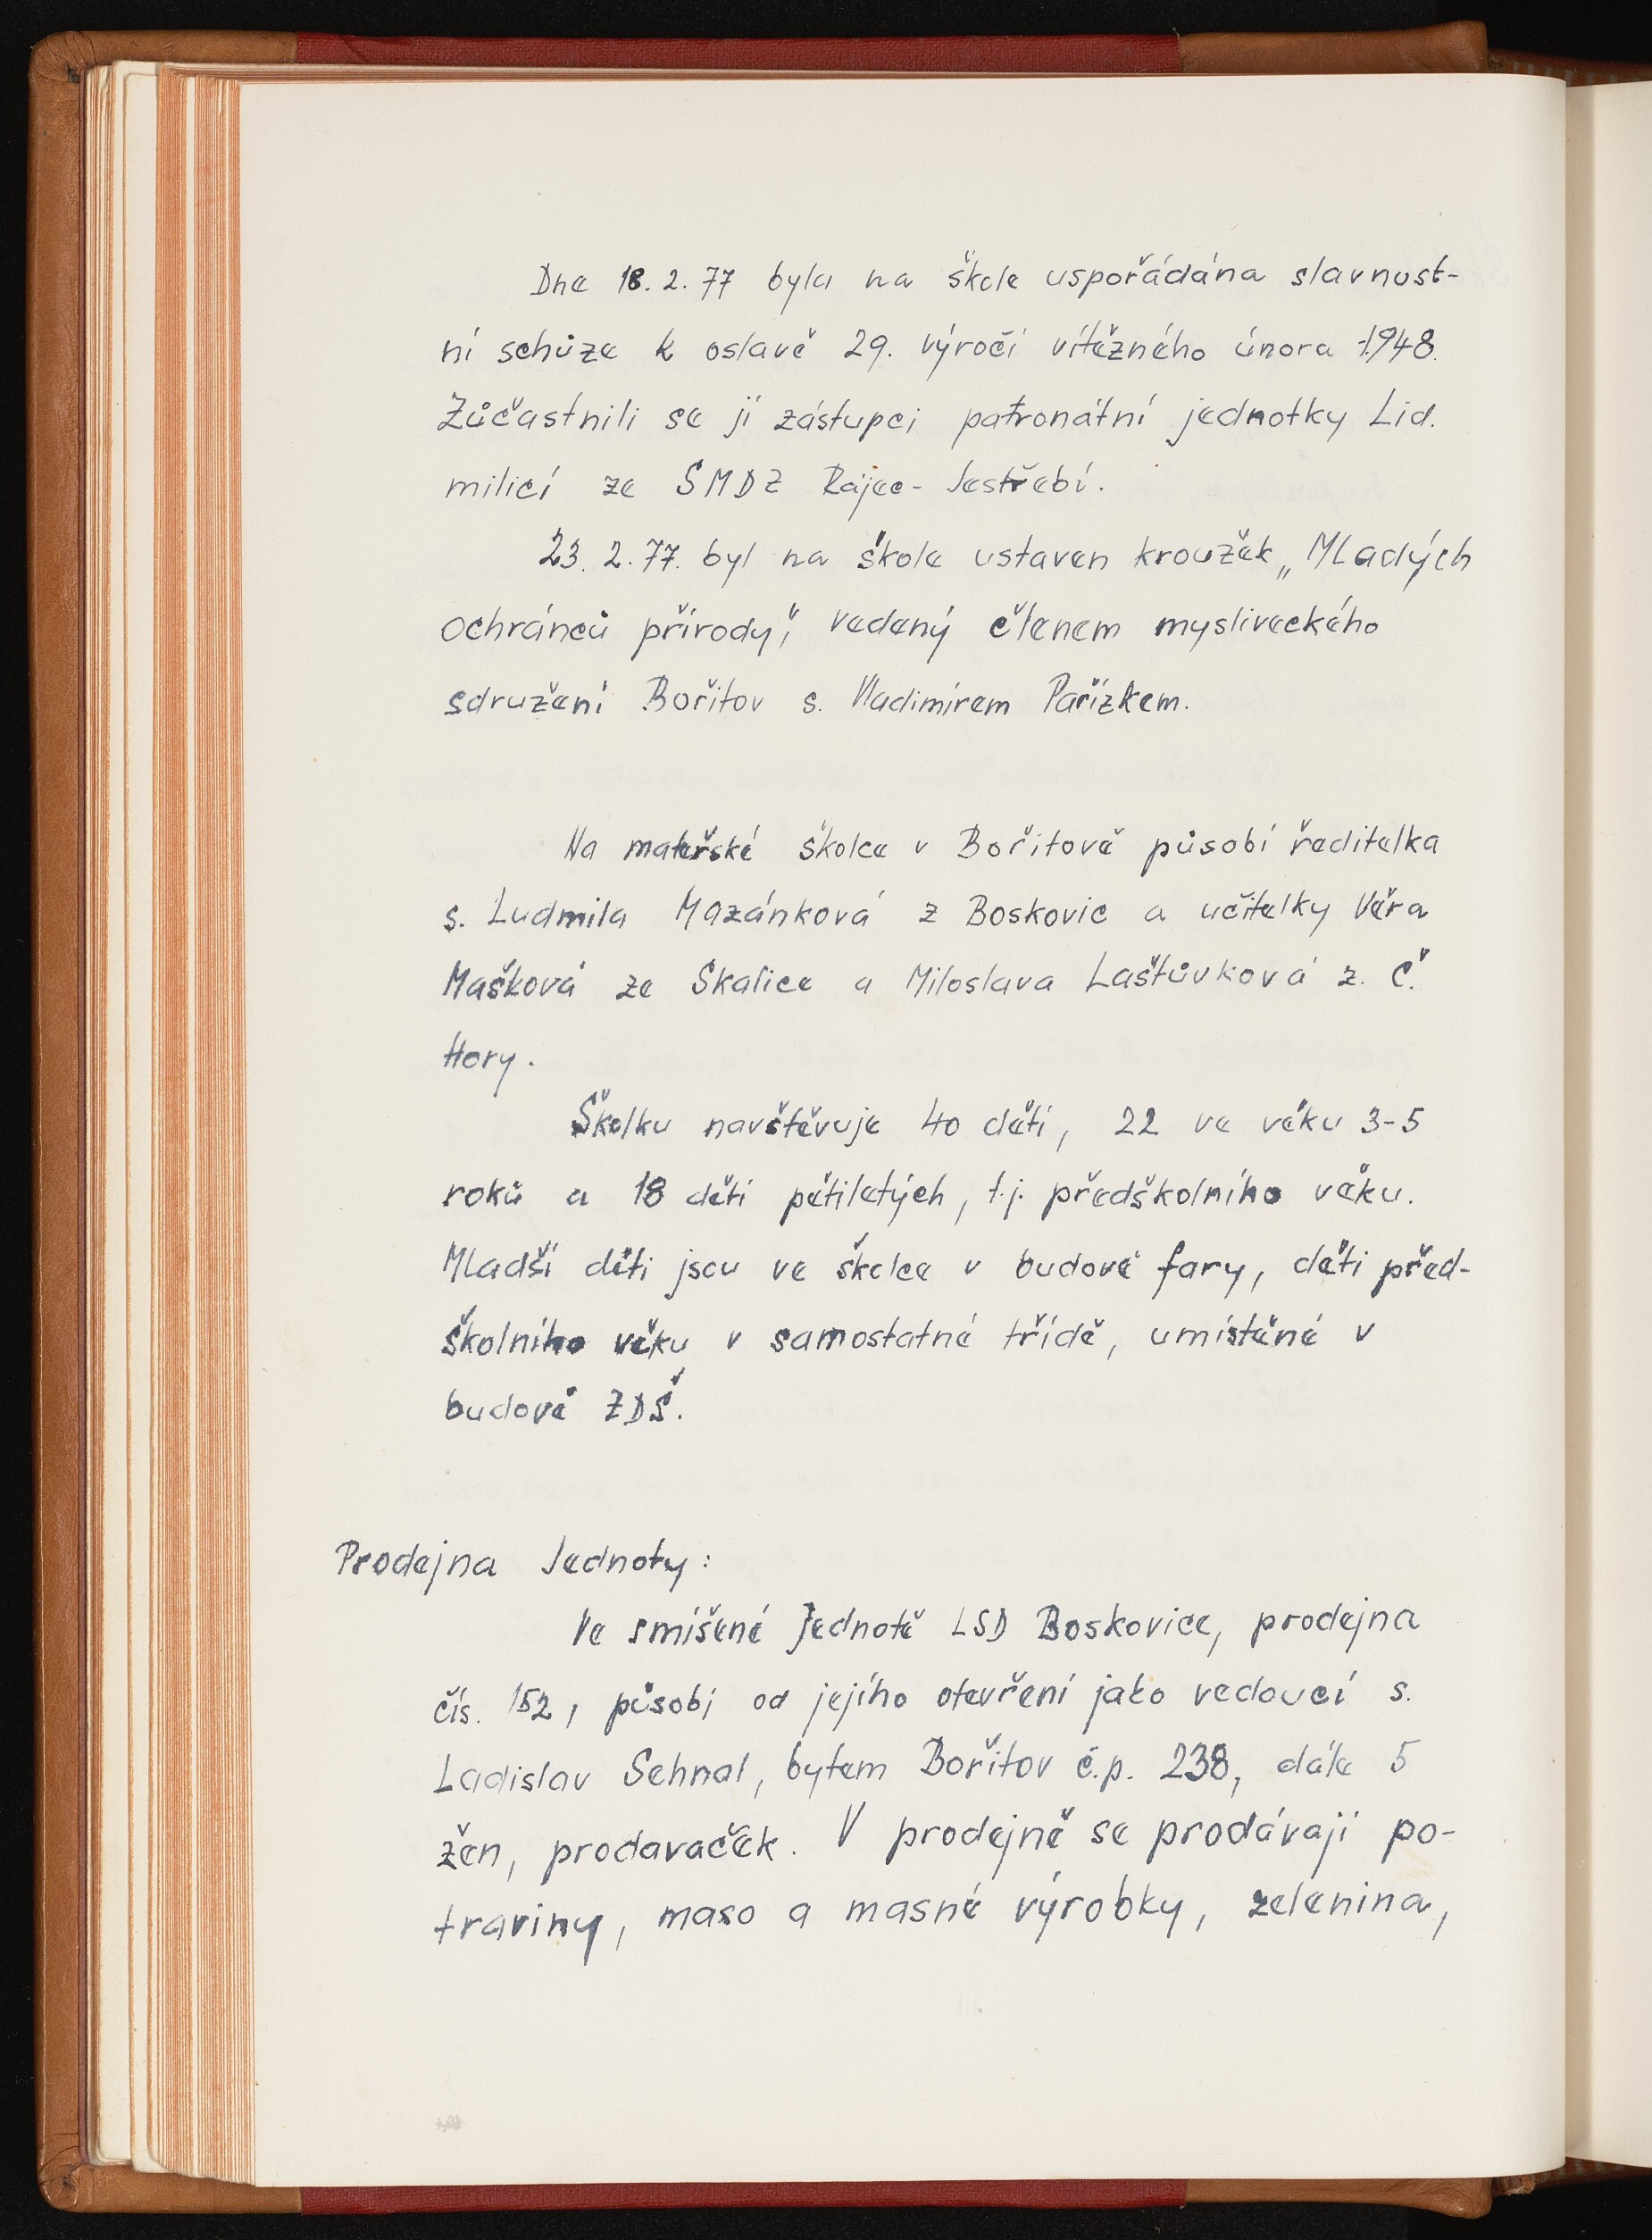 Dne 18. 2. 77 byla na škole uspořádána slavnost-
ní schůze k oslavě 29. výročí vítězného února 1948.
Zůčastnili se jí zástupci patronátní jednotky Lid.
milicí ze SMDZ Rájec- Jestřebí.
23. 2. 77. byl na škole ustaven kroužek „Mladých
ochránců přírody", vedený členem mysliveckého
sdružení Bořitov s. Vladimírem Pařízkem.
Na mateřské školce v Bořitově působí ředitelka
s. Ludmila Mazánková z Boskovic a učitelky Věra
Mašková ze Skalice a Miloslava Laštůvková z. Č.
Hory.
Školku navštěvuje 40 dětí, 22 ve věku 3-5
roků a 18 dětí pětiletých, t.j. předškolního věku.
Mladší děti jsou ve školce v budově fary, děti před-
školního věku v samostatné třídě, umístěné v
budově ZDŠ.
Prodejna Jednoty:
Ve smíšené Jednotě LSD Boskovice, prodejna
čís. 152, působí od jejího otevření jako vedoucí s.
Ladislav Sehnal, bytem Bořitov č.p. 238, dále 5
žen, prodavaček. V prodejně se prodávají po-
traviny, maso a masné výrobky, zelenina,